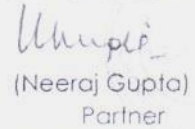 (Neeraj Gupta)
Partner